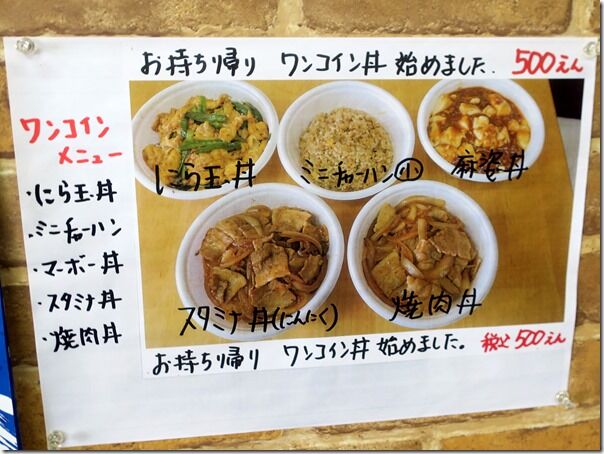 お持ち帰り ワンコイン丼 始めました. 500えん
ワンコイン
メニュー
・にら玉丼
・ミニチャーハン
・マーボー丼
・スタミナ丼
・焼肉丼
にら玉丼
ミニチャーハン 小
麻婆丼
スタミナ丼(にんにく)
焼肉丼
お持ち帰り ワンコイン丼 始めました。 税込500えん